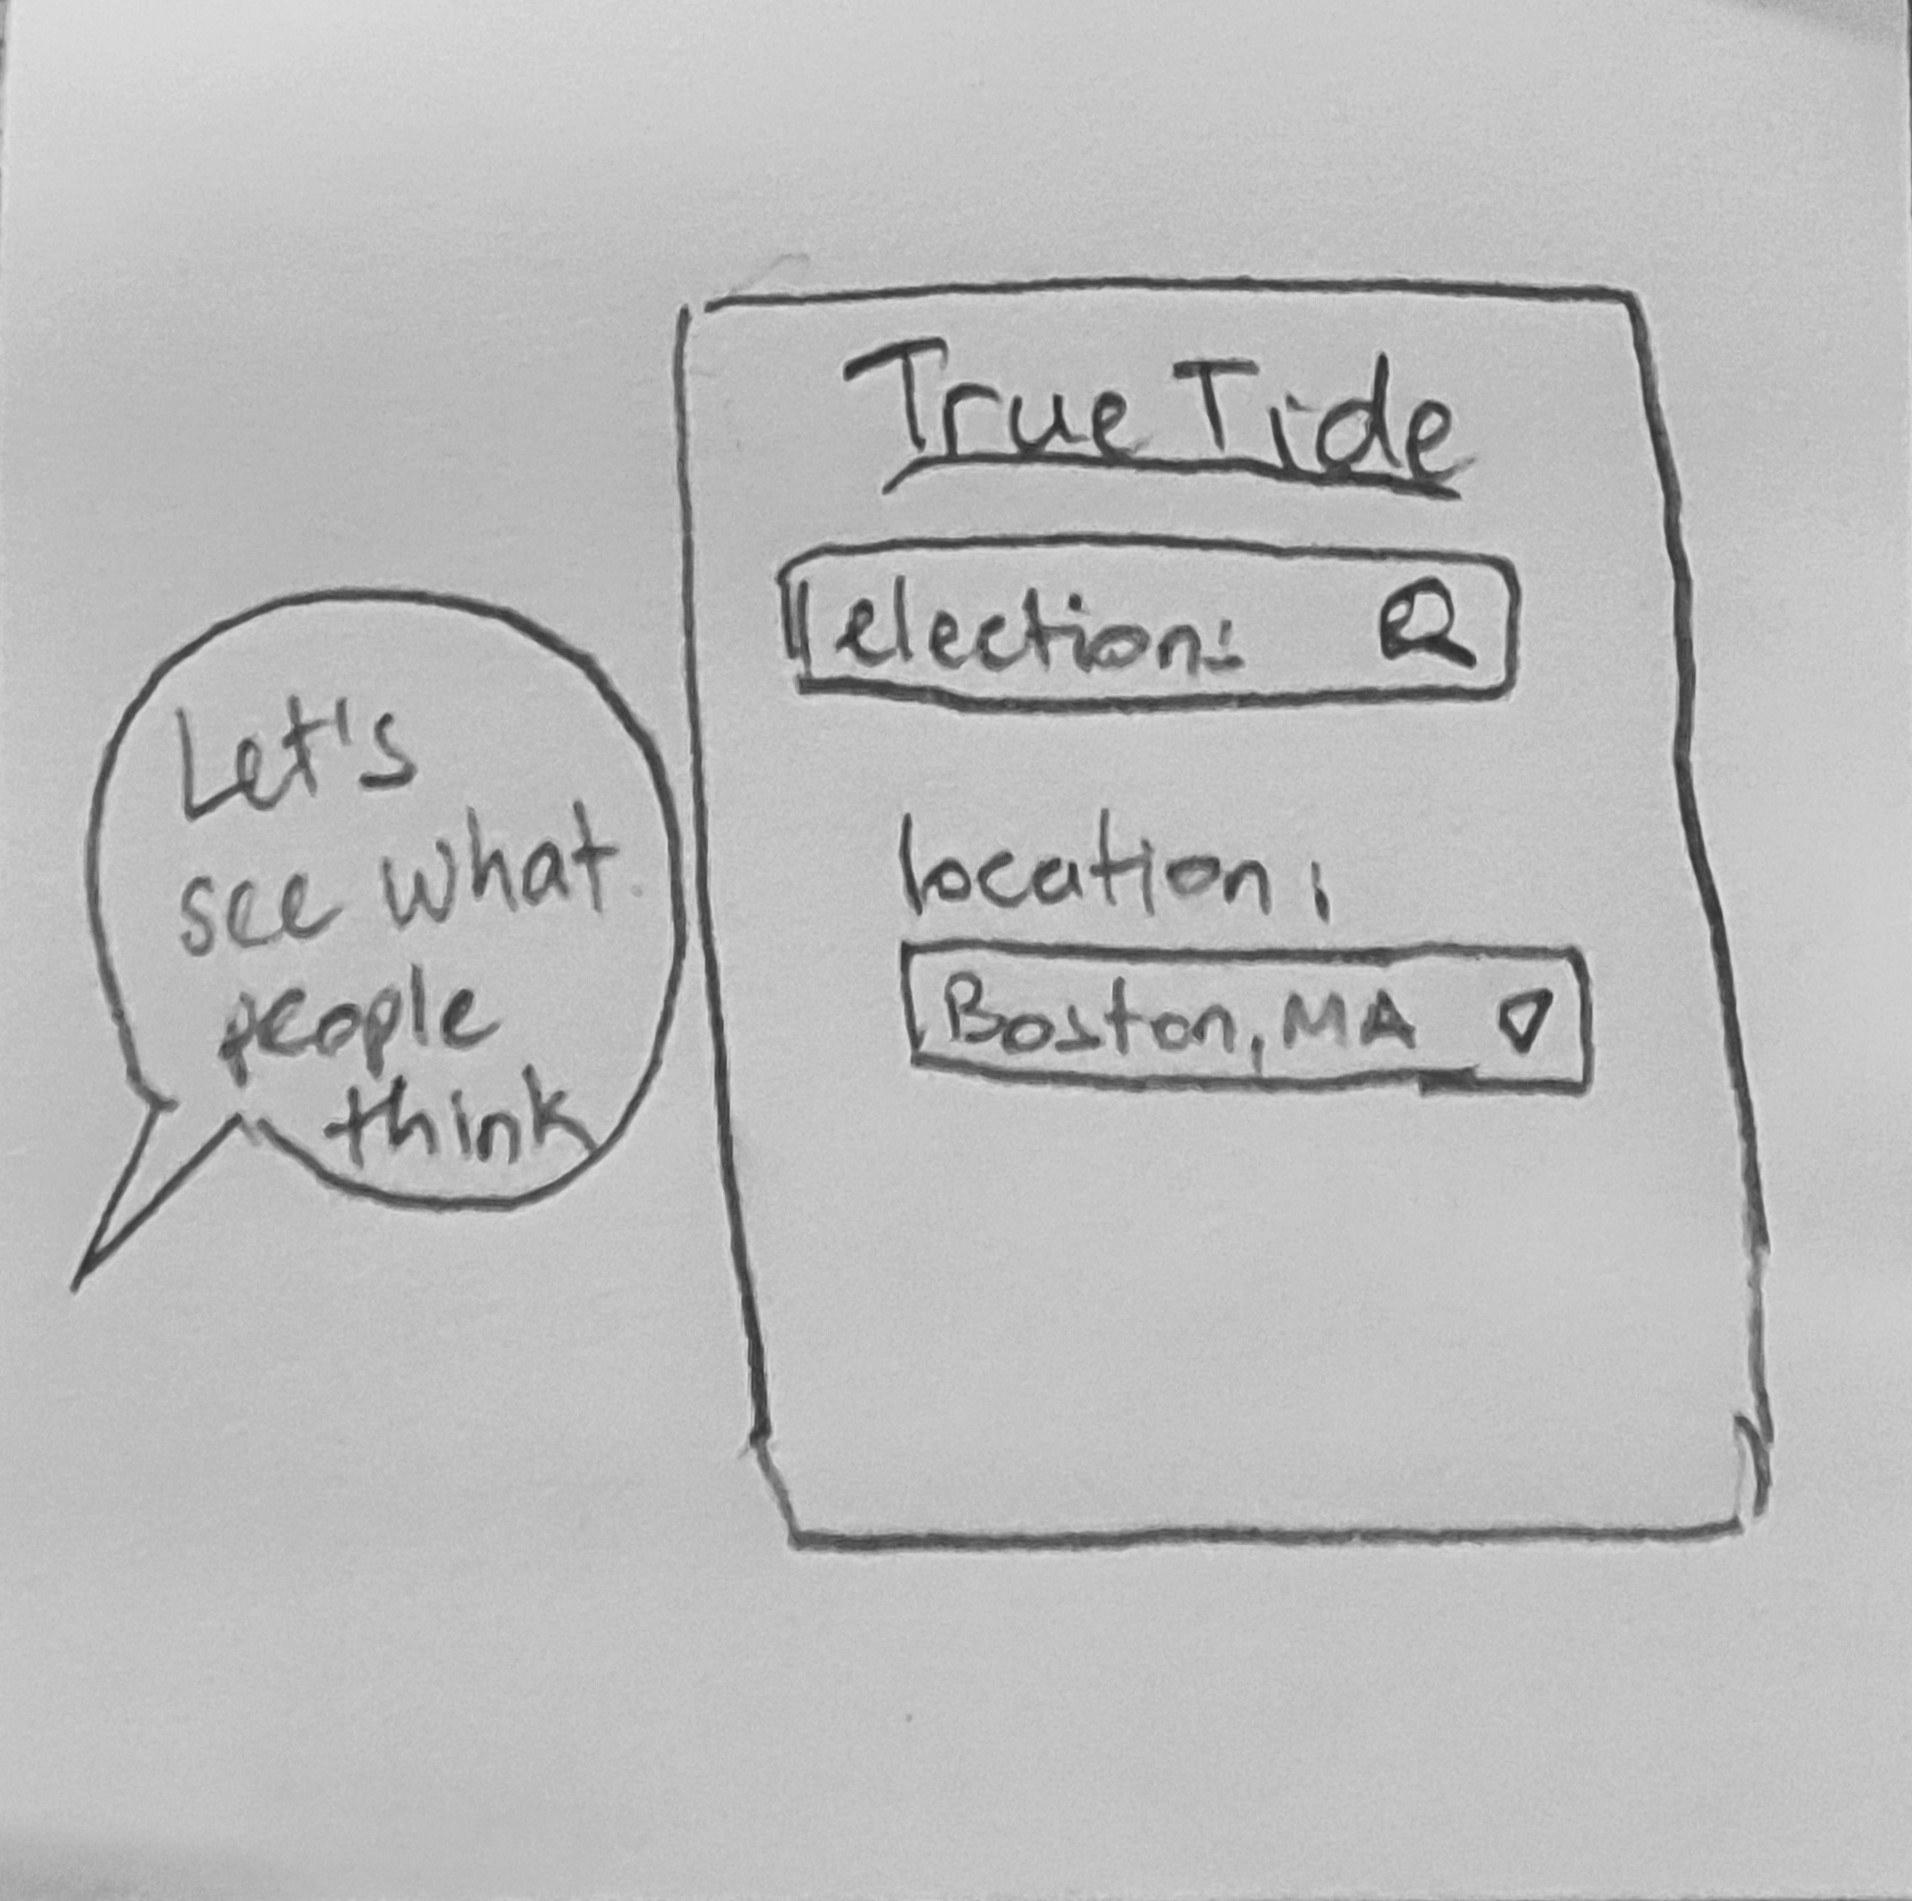 Let's
see what
people
think
True Tide
elections
location:
Boston, MA